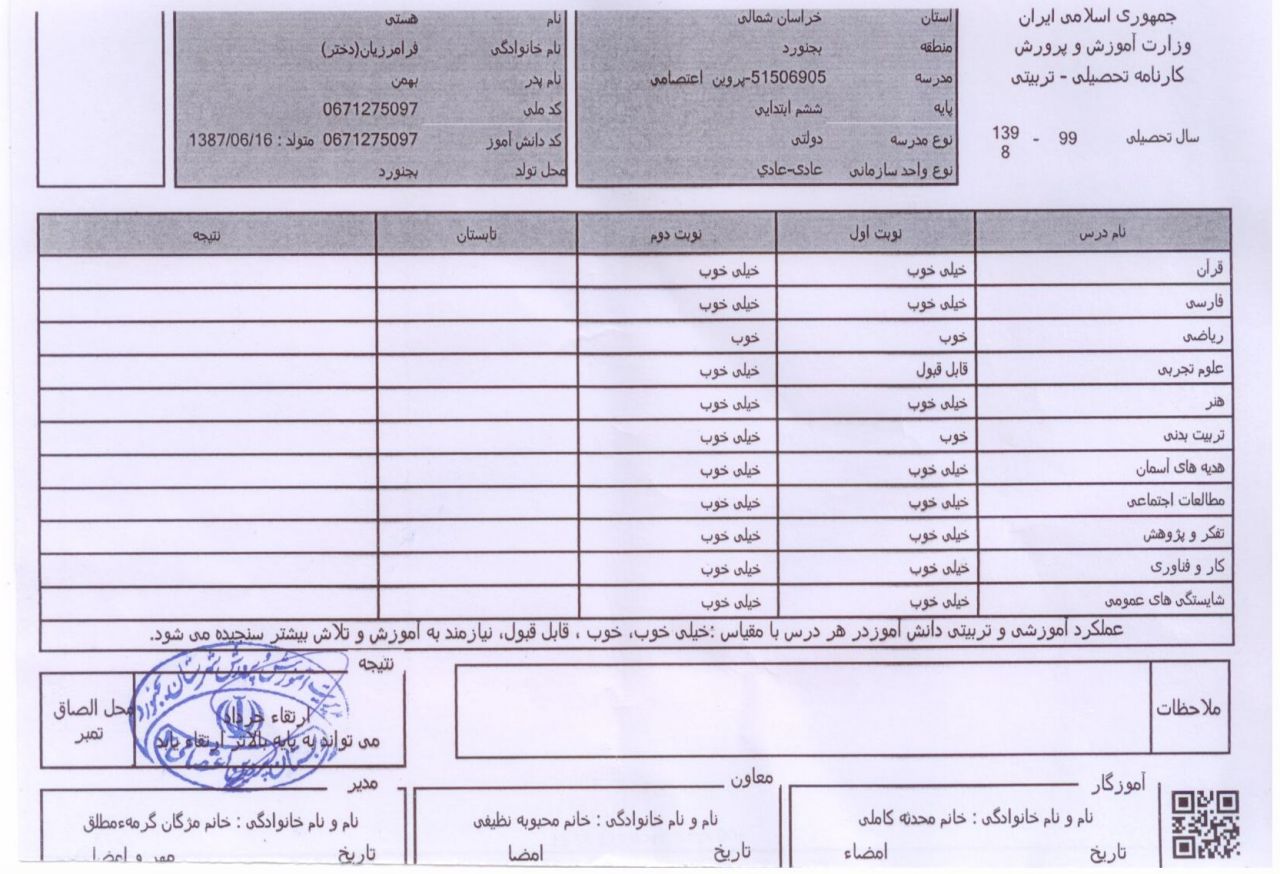 جمهوری اسلامی ایران
وزارت آموزش و پرورش
کارنامه تحصیلی - تربیتی
سال تحصیلی 99 - 1398
استان خراسان شمالی
منطقه بجنورد
مدرسه 51506905-پروین اعتصامی
پایه ششم ابتدایی
نوع مدرسه دولتی
نوع واحد سازمانی عادی-عادي
نام هستی
نام خانوادگی فرامرزیان(دختر)
نام پدر بهمن
کد ملی 0671275097
کد دانش آموز 0671275097 متولد : 1387/06/16
محل تولد بجنورد
نام درس نوبت اول نوبت دوم تابستان نتیجه
قرآن خیلی خوب خیلی خوب
فارسی خیلی خوب خیلی خوب
ریاضی خوب خوب
علوم تجربی قابل قبول خیلی خوب
هنر خیلی خوب خیلی خوب
تربیت بدنی خوب خیلی خوب
هدیه های آسمان خیلی خوب خیلی خوب
مطالعات اجتماعی خیلی خوب خیلی خوب
تفکر و پژوهش خیلی خوب خیلی خوب
کار و فناوری خیلی خوب خیلی خوب
شایستگی های عمومی خیلی خوب خیلی خوب
عملکرد آموزشی و تربیتی دانش آموزدر هر درس با مقیاس :خیلی خوب، خوب ، قابل قبول، نیازمند به آموزش و تلاش بیشتر سنجیده می شود.
ملاحظات
نتیجه
ارتقاء خرداد
می تواند به پایه بالاتر ارتقاء یابد
محل الصاق
تمبر
آموزگار
نام و نام خانوادگی : خانم محدثه کاملی
تاریخ امضاء
معاون
نام و نام خانوادگی : خانم محبوبه نظیفی
تاریخ امضا
مدیر
نام و نام خانوادگی : خانم مژگان گرمهءمطلق
تاریخ مهر و امضا